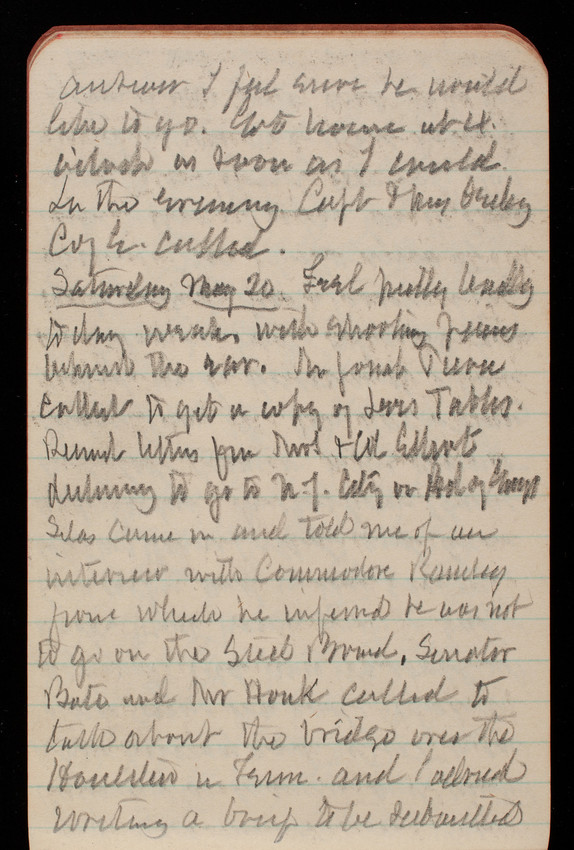 answer I feel sure he would
like to go. Got home at 4
oclock as soon as I could.
In the evening Capt & Mrs
Coyle called.
Saturday May 20. Feel pretty badly
today weak, with shooting pains
behind the ear. Mr Tiernan
called to get a copy of Tables.
Recvd letters from & Col Elliott
declining to go to N.Y. City on Bd of Engs
Silas came in and told me of an
interview with Commodore Ramsey
from which he inferred he was not
to go on the Steel Board. Senator
Bate and Mr Houk called to
talk about the bridge over the
Houlston in Tenn. and I advised
writing a brief to be submitted